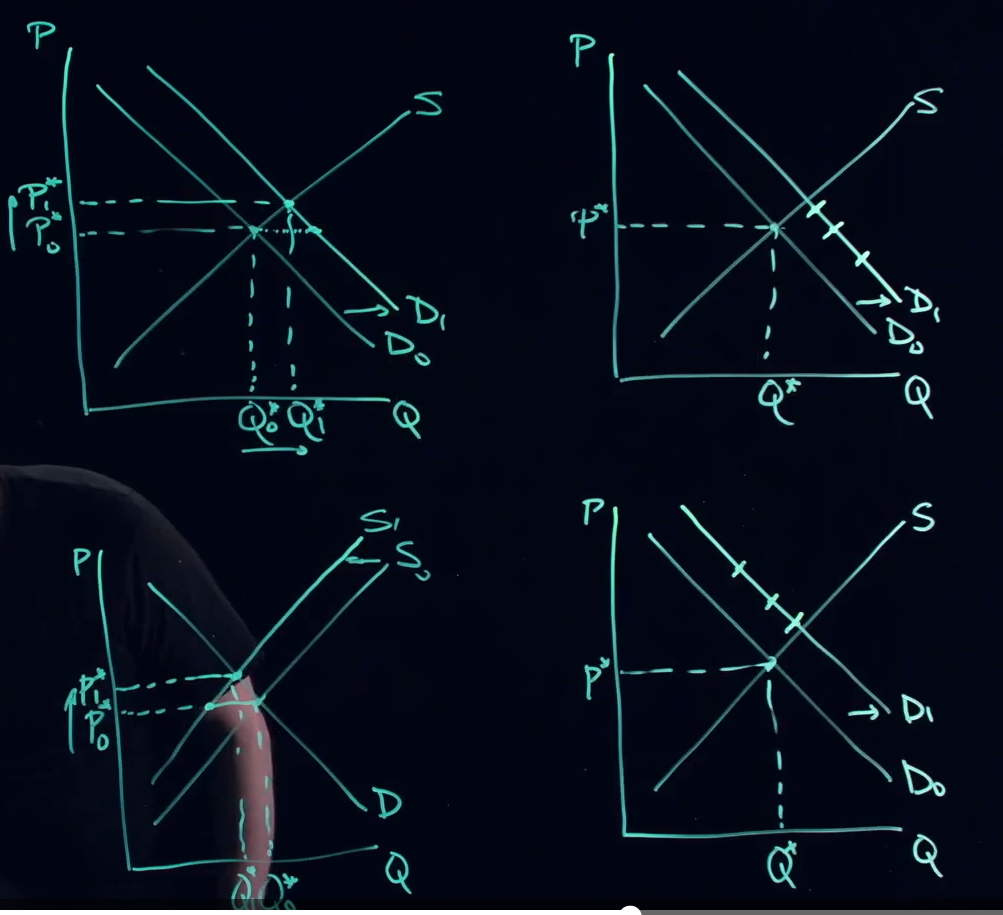 P
S
P₁*
P₀*
D₁
D₀
Q₀* Q₁*
Q
P
S
P*
D₁
D₀
Q*
Q
P
S₁
S₀
P₁*
P₀*
D
Q₁* Q₀*
Q
P
S
P*
D₁
D₀
Q*
Q